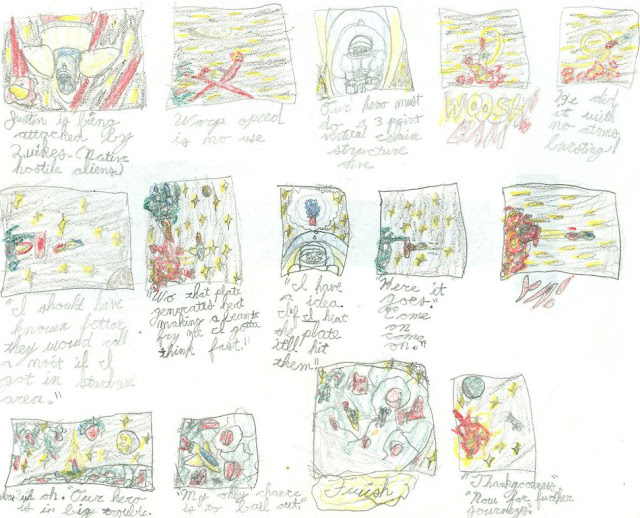 Justin is being
attacked by
Zuikes. (Native
hostile aliens)
Warp speed
is no use
Our hero must
do a 3 point
vertical
structure
WOOSH
BAM
He did
it with
no atoms
bursting!
"I should have
known better
they would call
a moit if I
got in
area."
"Wo that plate
generates heat
making a beam to
fry me I gotta
think fast."
"I have
a idea.
If I heat
the plate
itll hit
them"
"Here it
goes."
Come
on
come
on."
uh oh. "Our hero
is in big trouble.
"My only chance
is to bail out."
Fwish
"Thankgoodness"
"Now for further
journeys."